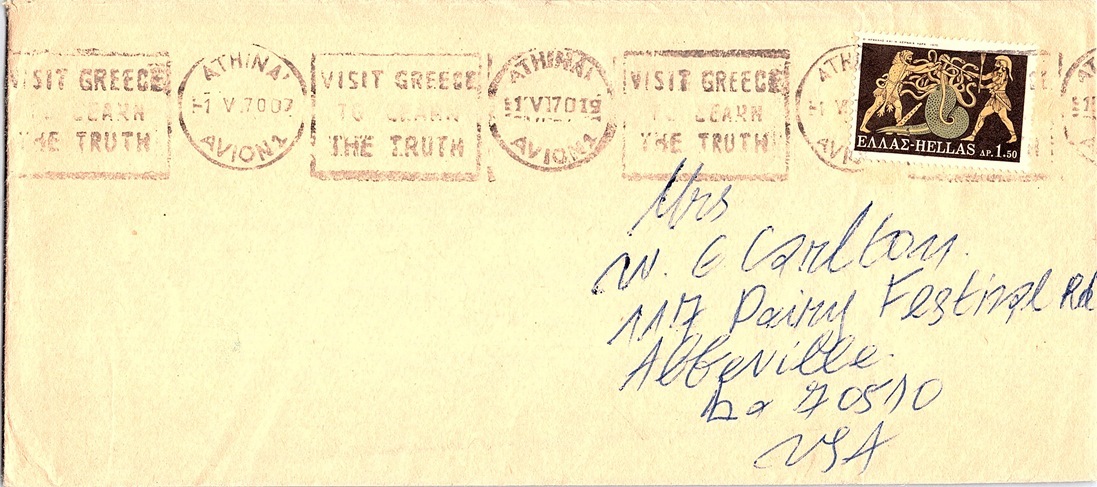 VISIT GREECE
TO LEARN
THE TRUTH
ATHINAI
-1 V.7007
AVION 2
VISIT GREECE
TO LEARN
THE TRUTH
ATHINAI
AVION 2
VISIT GREECE
TO LEARN
THE TRUTH
ΕΛΛΑΣ-HELLAS ΔΡ. 1.50
Mrs
W. E Carlton.
117 Dairy Festival Rd
Abbeville
La 70510
USA